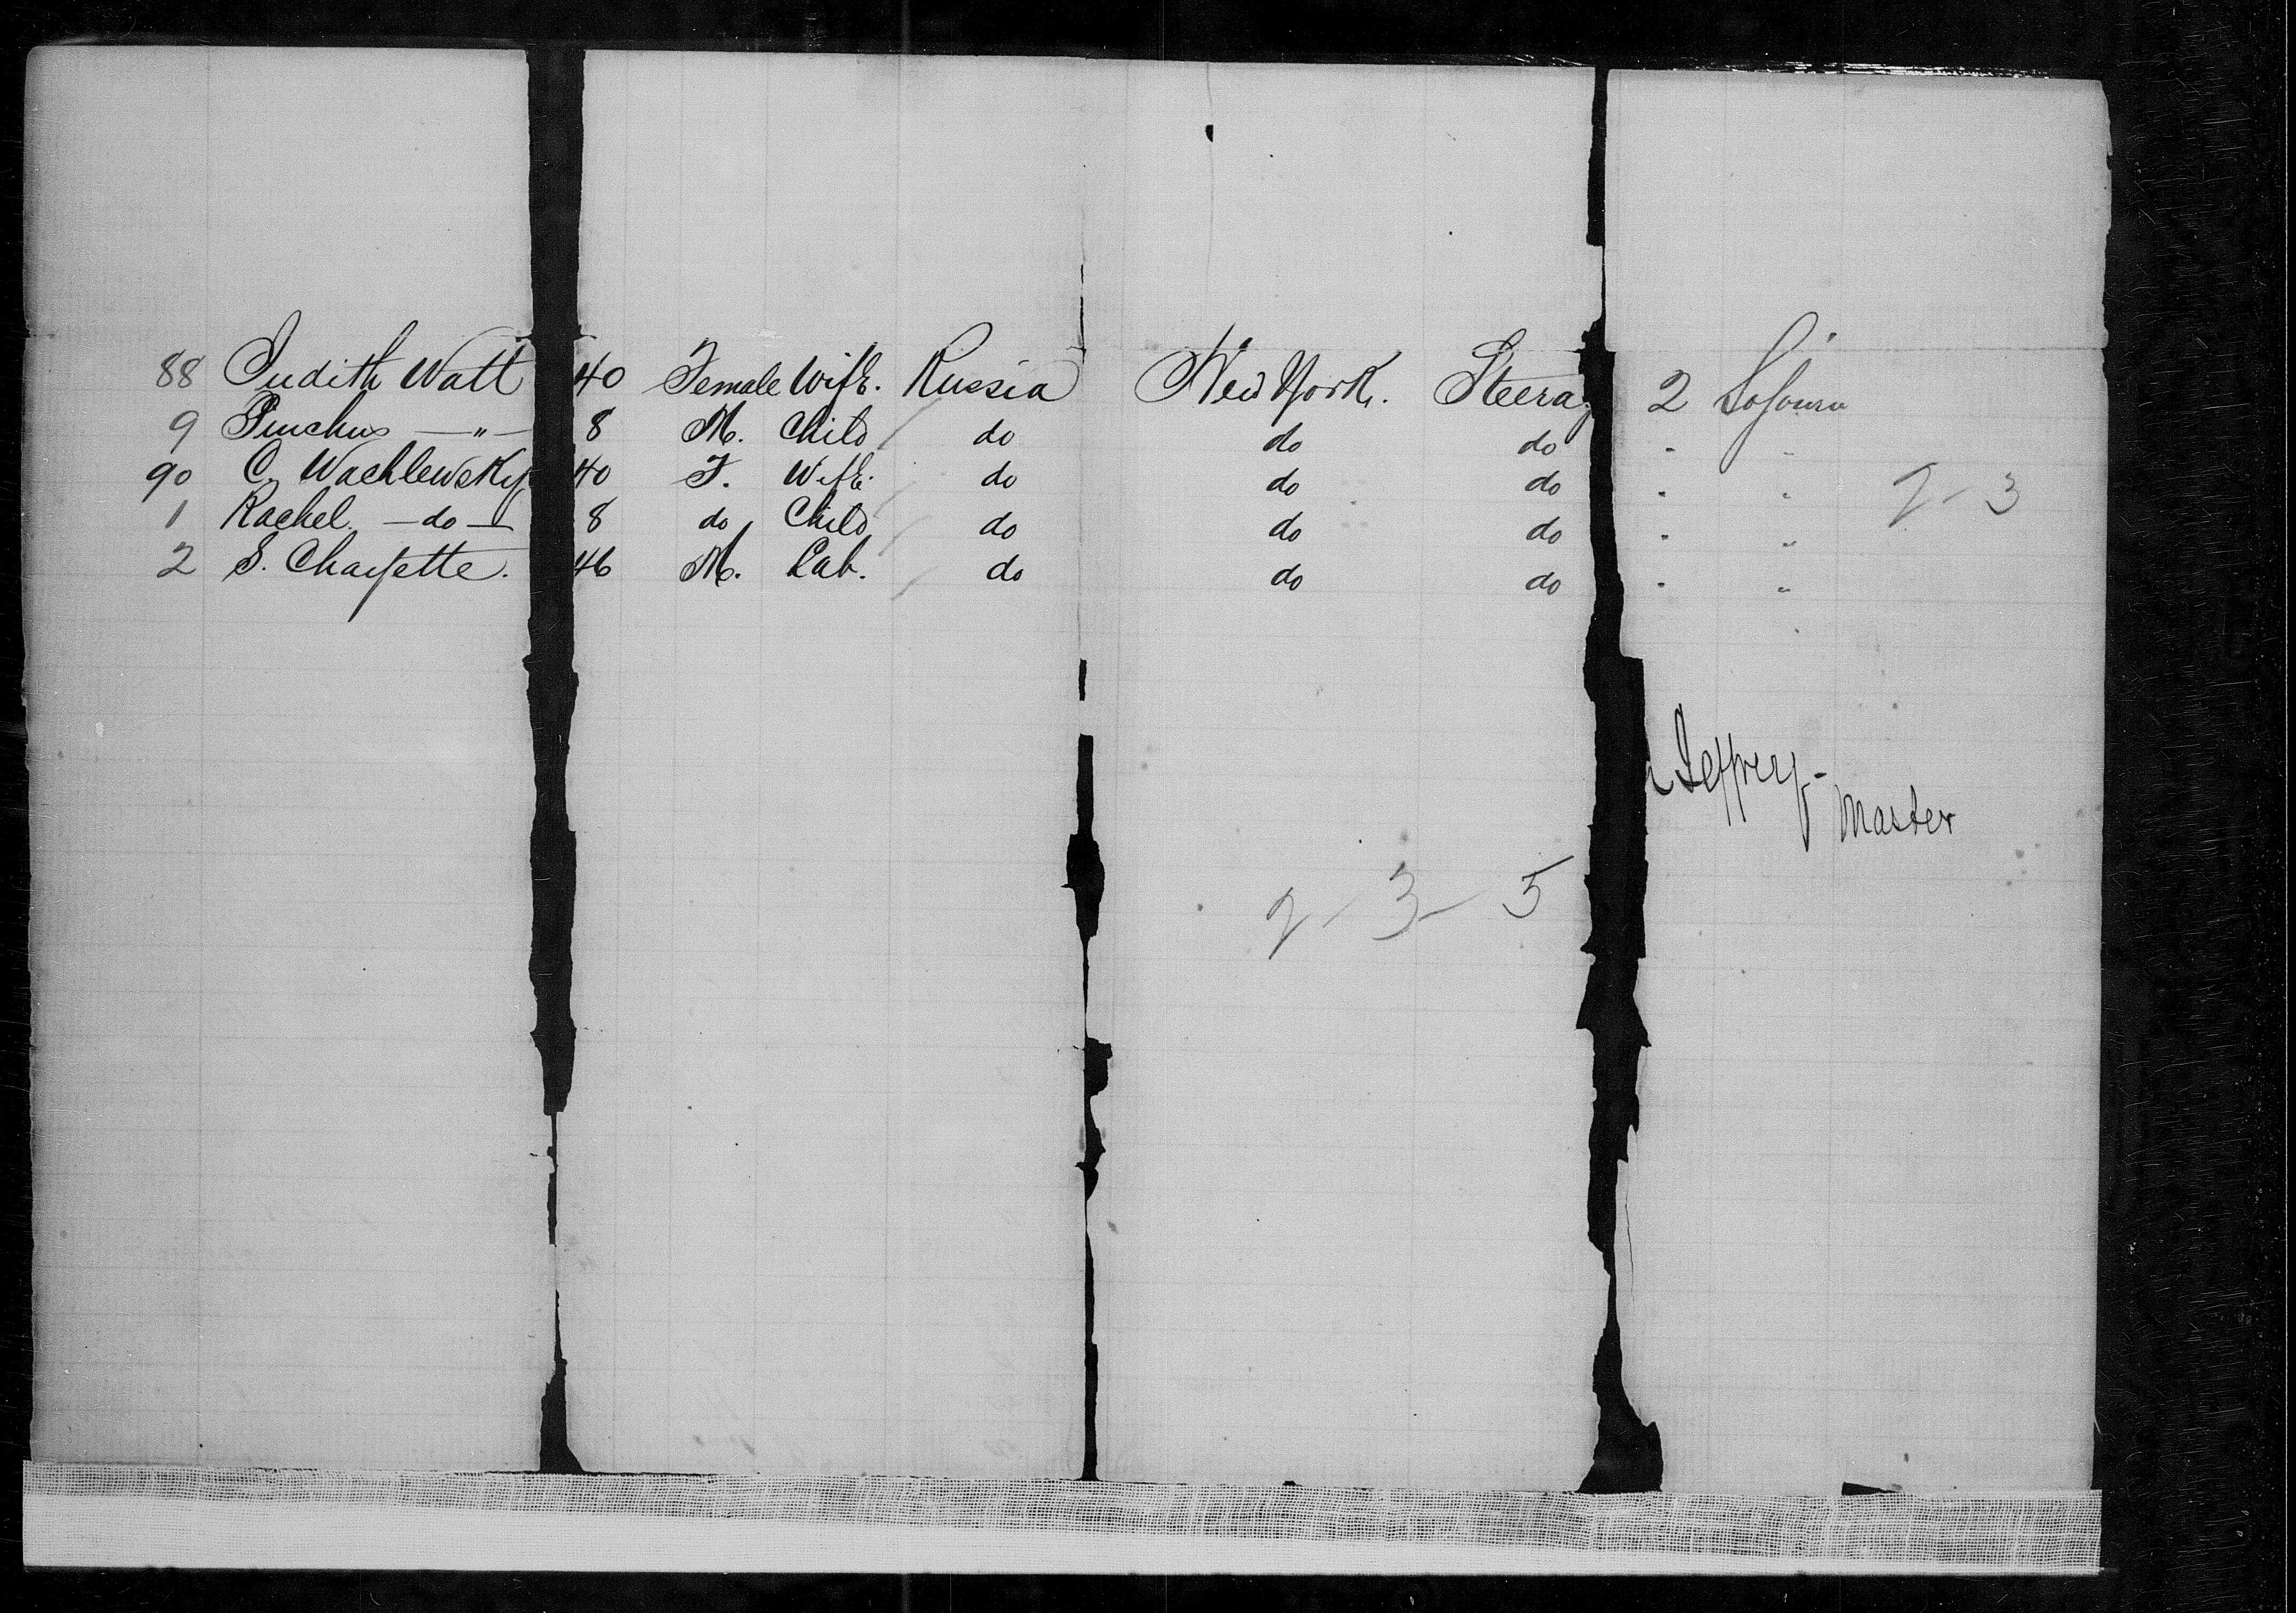 88 Judith Watt 40 Female Wife. Russia New York. Steera 2 Sojourn
9 Pinchus — " — 8 M. Child do do do " "
90 C. Wachlewsky 40 F. Wife. do do do " "
1 Rachel. — do — 8 do Child do do do " "
2 S. Chayette. 46 M. Lab. do do do " "
2 - 3
Jeffrey - Master
2 - 3 - 5